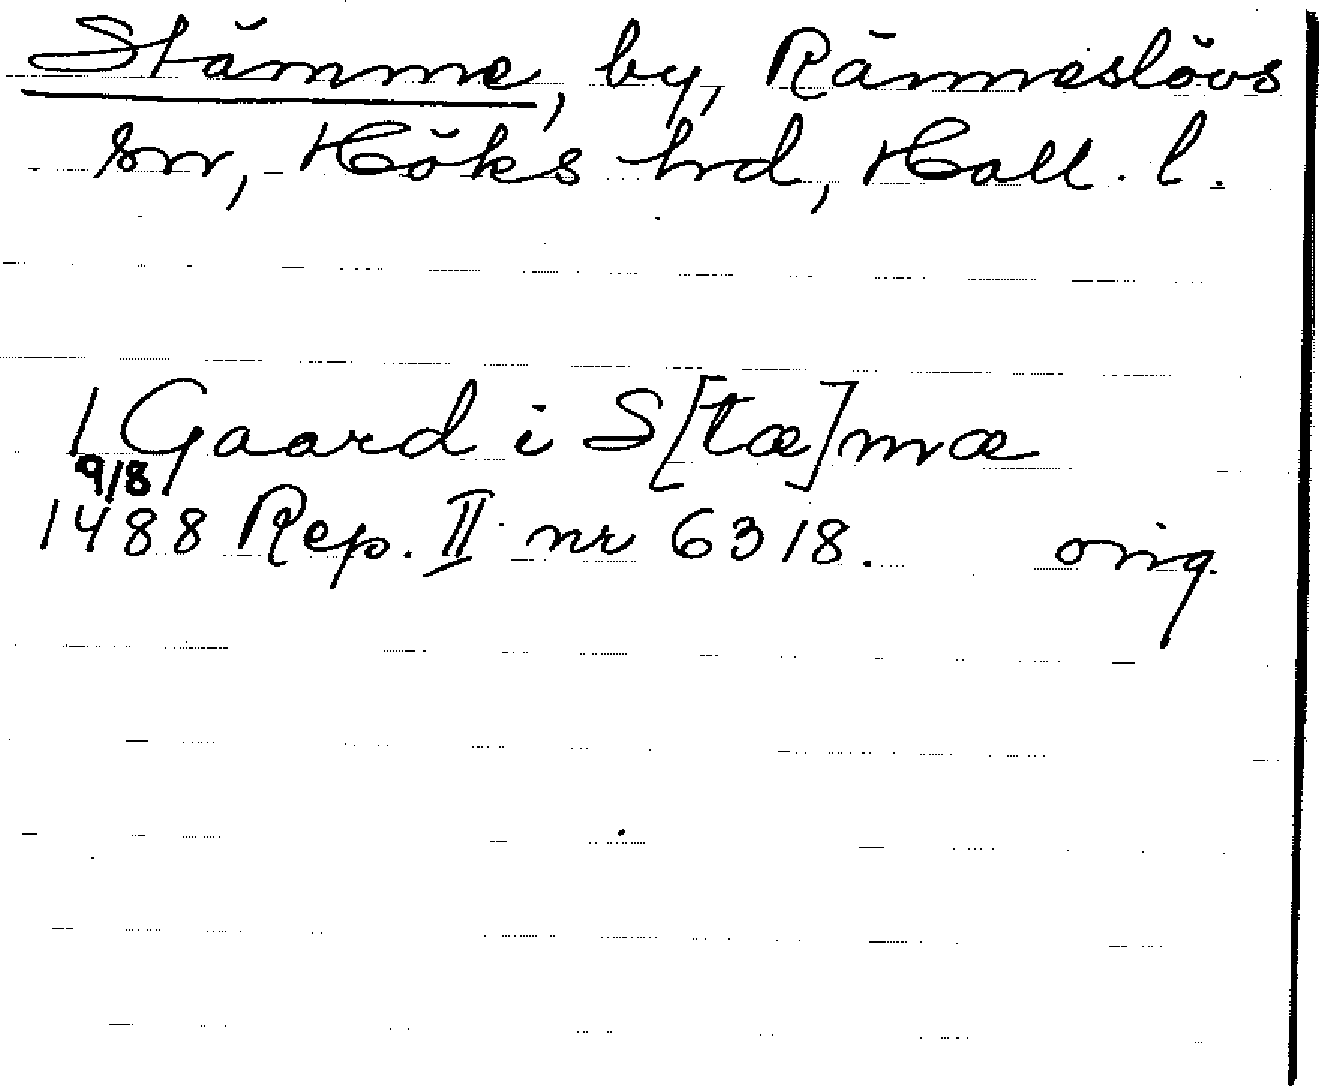 Stämme, by, Ränneslövs
sn, Höks hrd, Hall. l.
1 Gaard i S[tæ]mæ
9/8
1488 Rep. II nr 6318. orig.